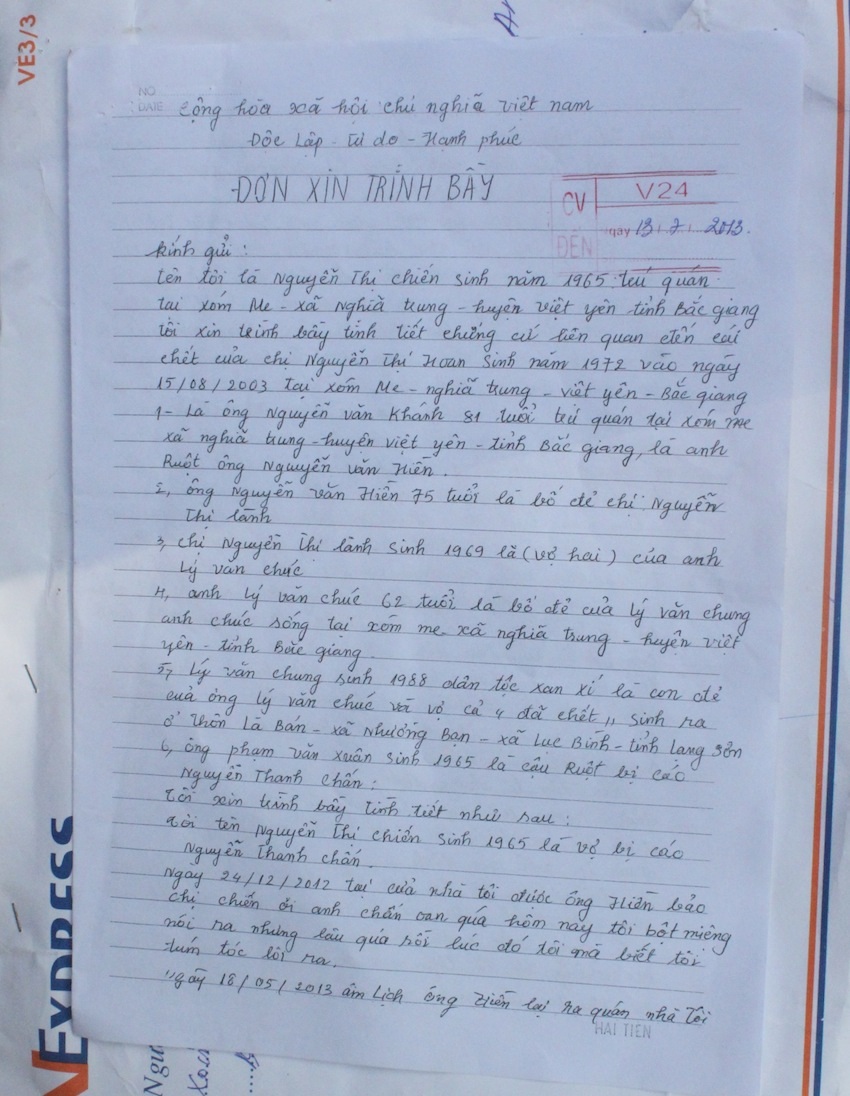 VE3/3
NO
DATE
cộng hòa xã hội chủ nghĩa việt nam
Độc Lập - tự do - Hạnh phúc
ĐƠN XIN TRÌNH BẦY
CV ĐẾN
V24
ngày 13.7. 2013.
kính gửi :
tên tôi là Nguyễn Thị chiến sinh năm 1965 trú quán
tại xóm Me - xã nghĩa trung - huyện việt yên tỉnh Bắc giang
tôi xin trình bầy tình tiết chứng cứ liên quan đến cái
chết của chị Nguyễn Thị Hoan Sinh năm 1972 vào ngày
15/08/2003 tại xóm Me - nghĩa trung - việt yên - Bắc giang
1- Là ông Nguyễn văn Khánh 81 tuổi trú quán tại xóm me
xã nghĩa trung - huyện việt yên - tỉnh Bắc giang, là anh
Ruột ông Nguyễn văn Hiền.
2, ông Nguyễn văn Hiền 75 tuổi là bố đẻ chị Nguyễn
Thị lành
3, chị Nguyễn Thị lành sinh 1969 là (vợ hai) của anh
Lý văn chúc
4, anh Lý văn chúc 62 tuổi là bố đẻ của Lý văn chung
anh chúc sống tại xóm me xã nghĩa trung - huyện việt
yên - tỉnh Bắc giang
5, Lý văn chung sinh 1988 dân tộc xan xí là con đẻ
của ông Lý văn chúc và vợ cả " đã chết " sinh ra
ở thôn Là Bán - xã Nhượng Bạn - xã Lục Bình - tỉnh Lạng Sơn
6, ông phạm văn xuân sinh 1965 là cậu Ruột bị cáo
Nguyễn Thanh chấn :
tôi xin trình bầy tình tiết như sau :
tôi tên Nguyễn Thị chiến sinh 1965 là vợ bị cáo
Nguyễn Thanh chấn.
Ngày 24/12/2012 tại cửa nhà tôi được ông Hiền bảo
chị chiến ơi anh chấn oan quá hôm nay tôi bột miệng
nói ra nhưng lâu quá rồi lúc đó tôi mà biết tôi
tum tóc lôi ra.
ngày 18/05/2013 âm Lịch ông Hiền lại ra quán nhà Tôi
HẢI TIẾN
EXPRESS